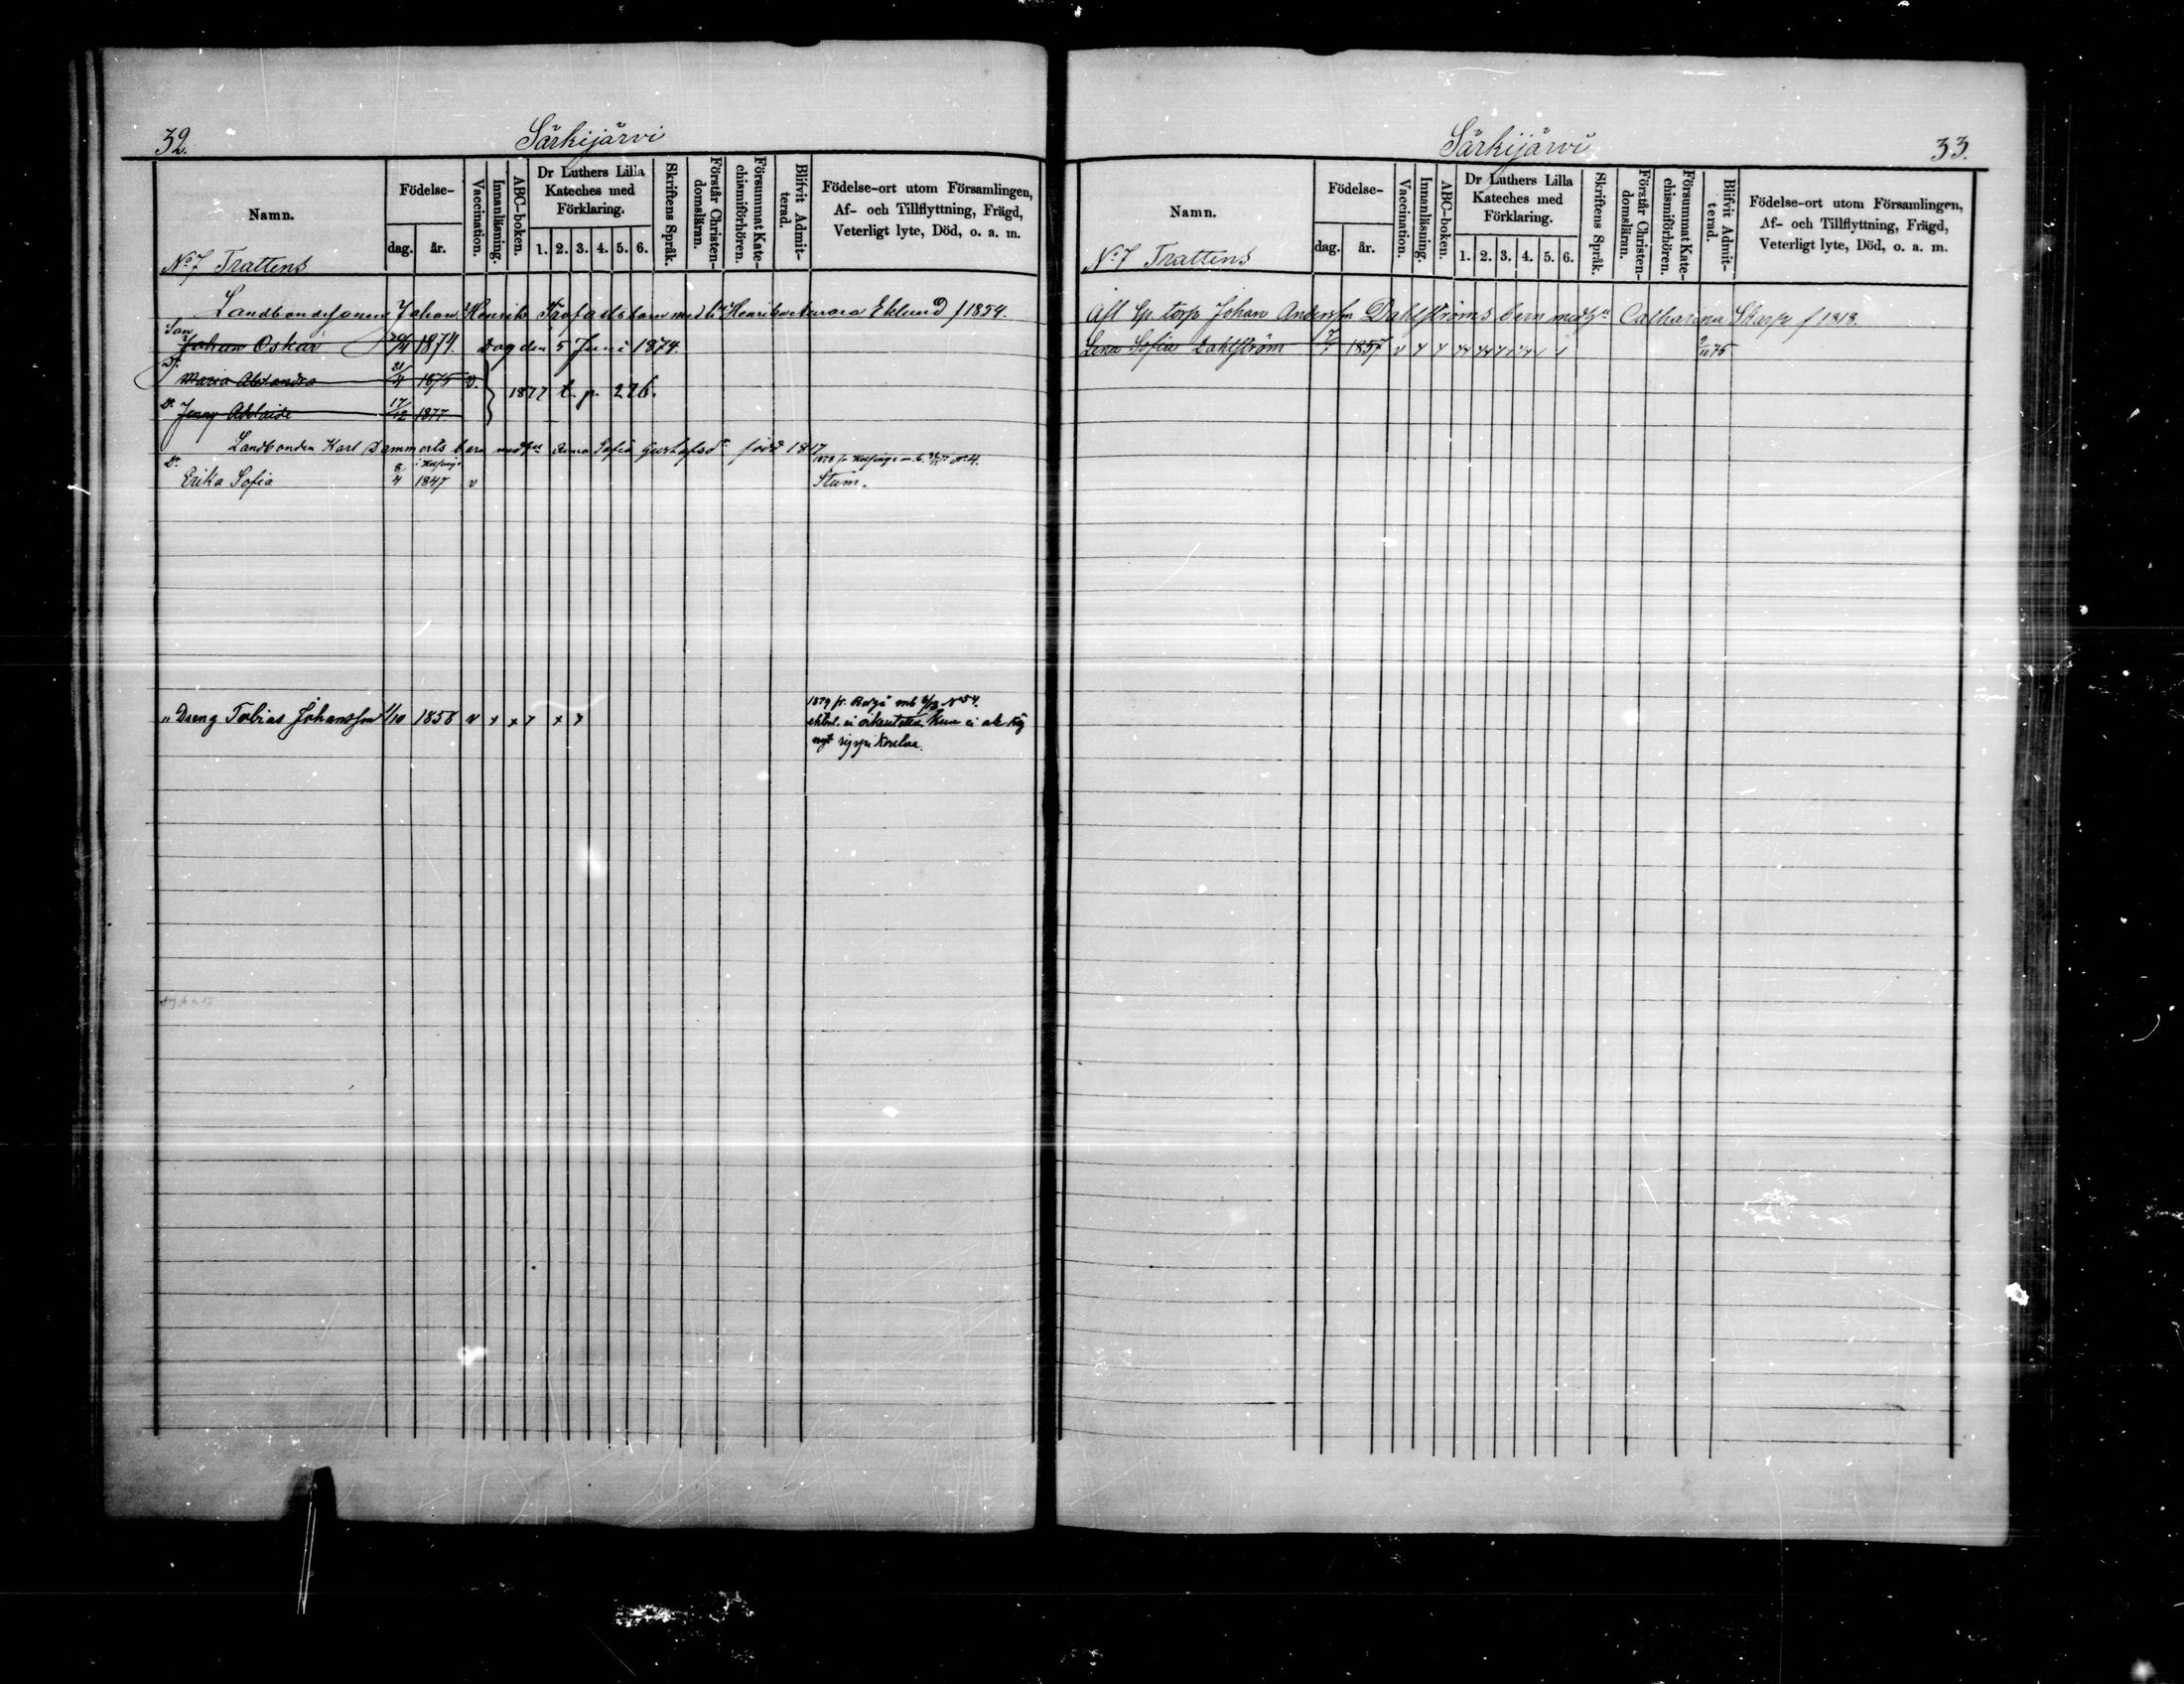 32.
Särkijärvi
Namn.
Födelse-
dag. år.
Vaccination.
Innanläsning.
ABC-boken.
Dr Luthers Lilla
Kateches med
Förklaring.
1. 2. 3. 4. 5. 6.
Skriftens Språk.
Förstår Christen-
domsläran.
Försummat Kate-
chismiförhören.
Blifvit Admit-
terad.
Födelse-ort utom Församlingen,
Af- och Tillflyttning, Frägd,
Veterligt lyte, Död, o. a. m.
No 7 Trattens
Landbondesonen Johan Henrik Trofasts barn med Henrika Aurora Eklund f 1854.
Son
Johan Oskar 1874. dog den 5 Juni 1874.
Dr.
Maria Alexandra 21/4 1875 v.
1877 t. p. 276.
Dr. Jenny Adelaide 17/12 1877
Landbonden Karl Dammerts barn med Anna Sofia Gustafsdr född 1817
Dr.
Erika Sofia 8/4 1847 v Stum.
„ Dreng Tobias Johansson 1/10 1858 v x x x x x
33.
Särkijärvi
Namn.
Födelse-
dag. år.
Vaccination.
Innanläsning.
ABC-boken.
Dr Luthers Lilla
Kateches med
Förklaring.
1. 2. 3. 4. 5. 6.
Skriftens Språk.
Förstår Christen-
domsläran.
Försummat Kate-
chismiförhören.
Blifvit Admit-
terad.
Födelse-ort utom Församlingen,
Af- och Tillflyttning, Frägd,
Veterligt lyte, Död, o. a. m.
No 7 Trattens
Afl Sp. torp Johan Andersson Dahlströms barn med Catharina Skarp f 1818.
Lena Sofia Dahlström 1857 v